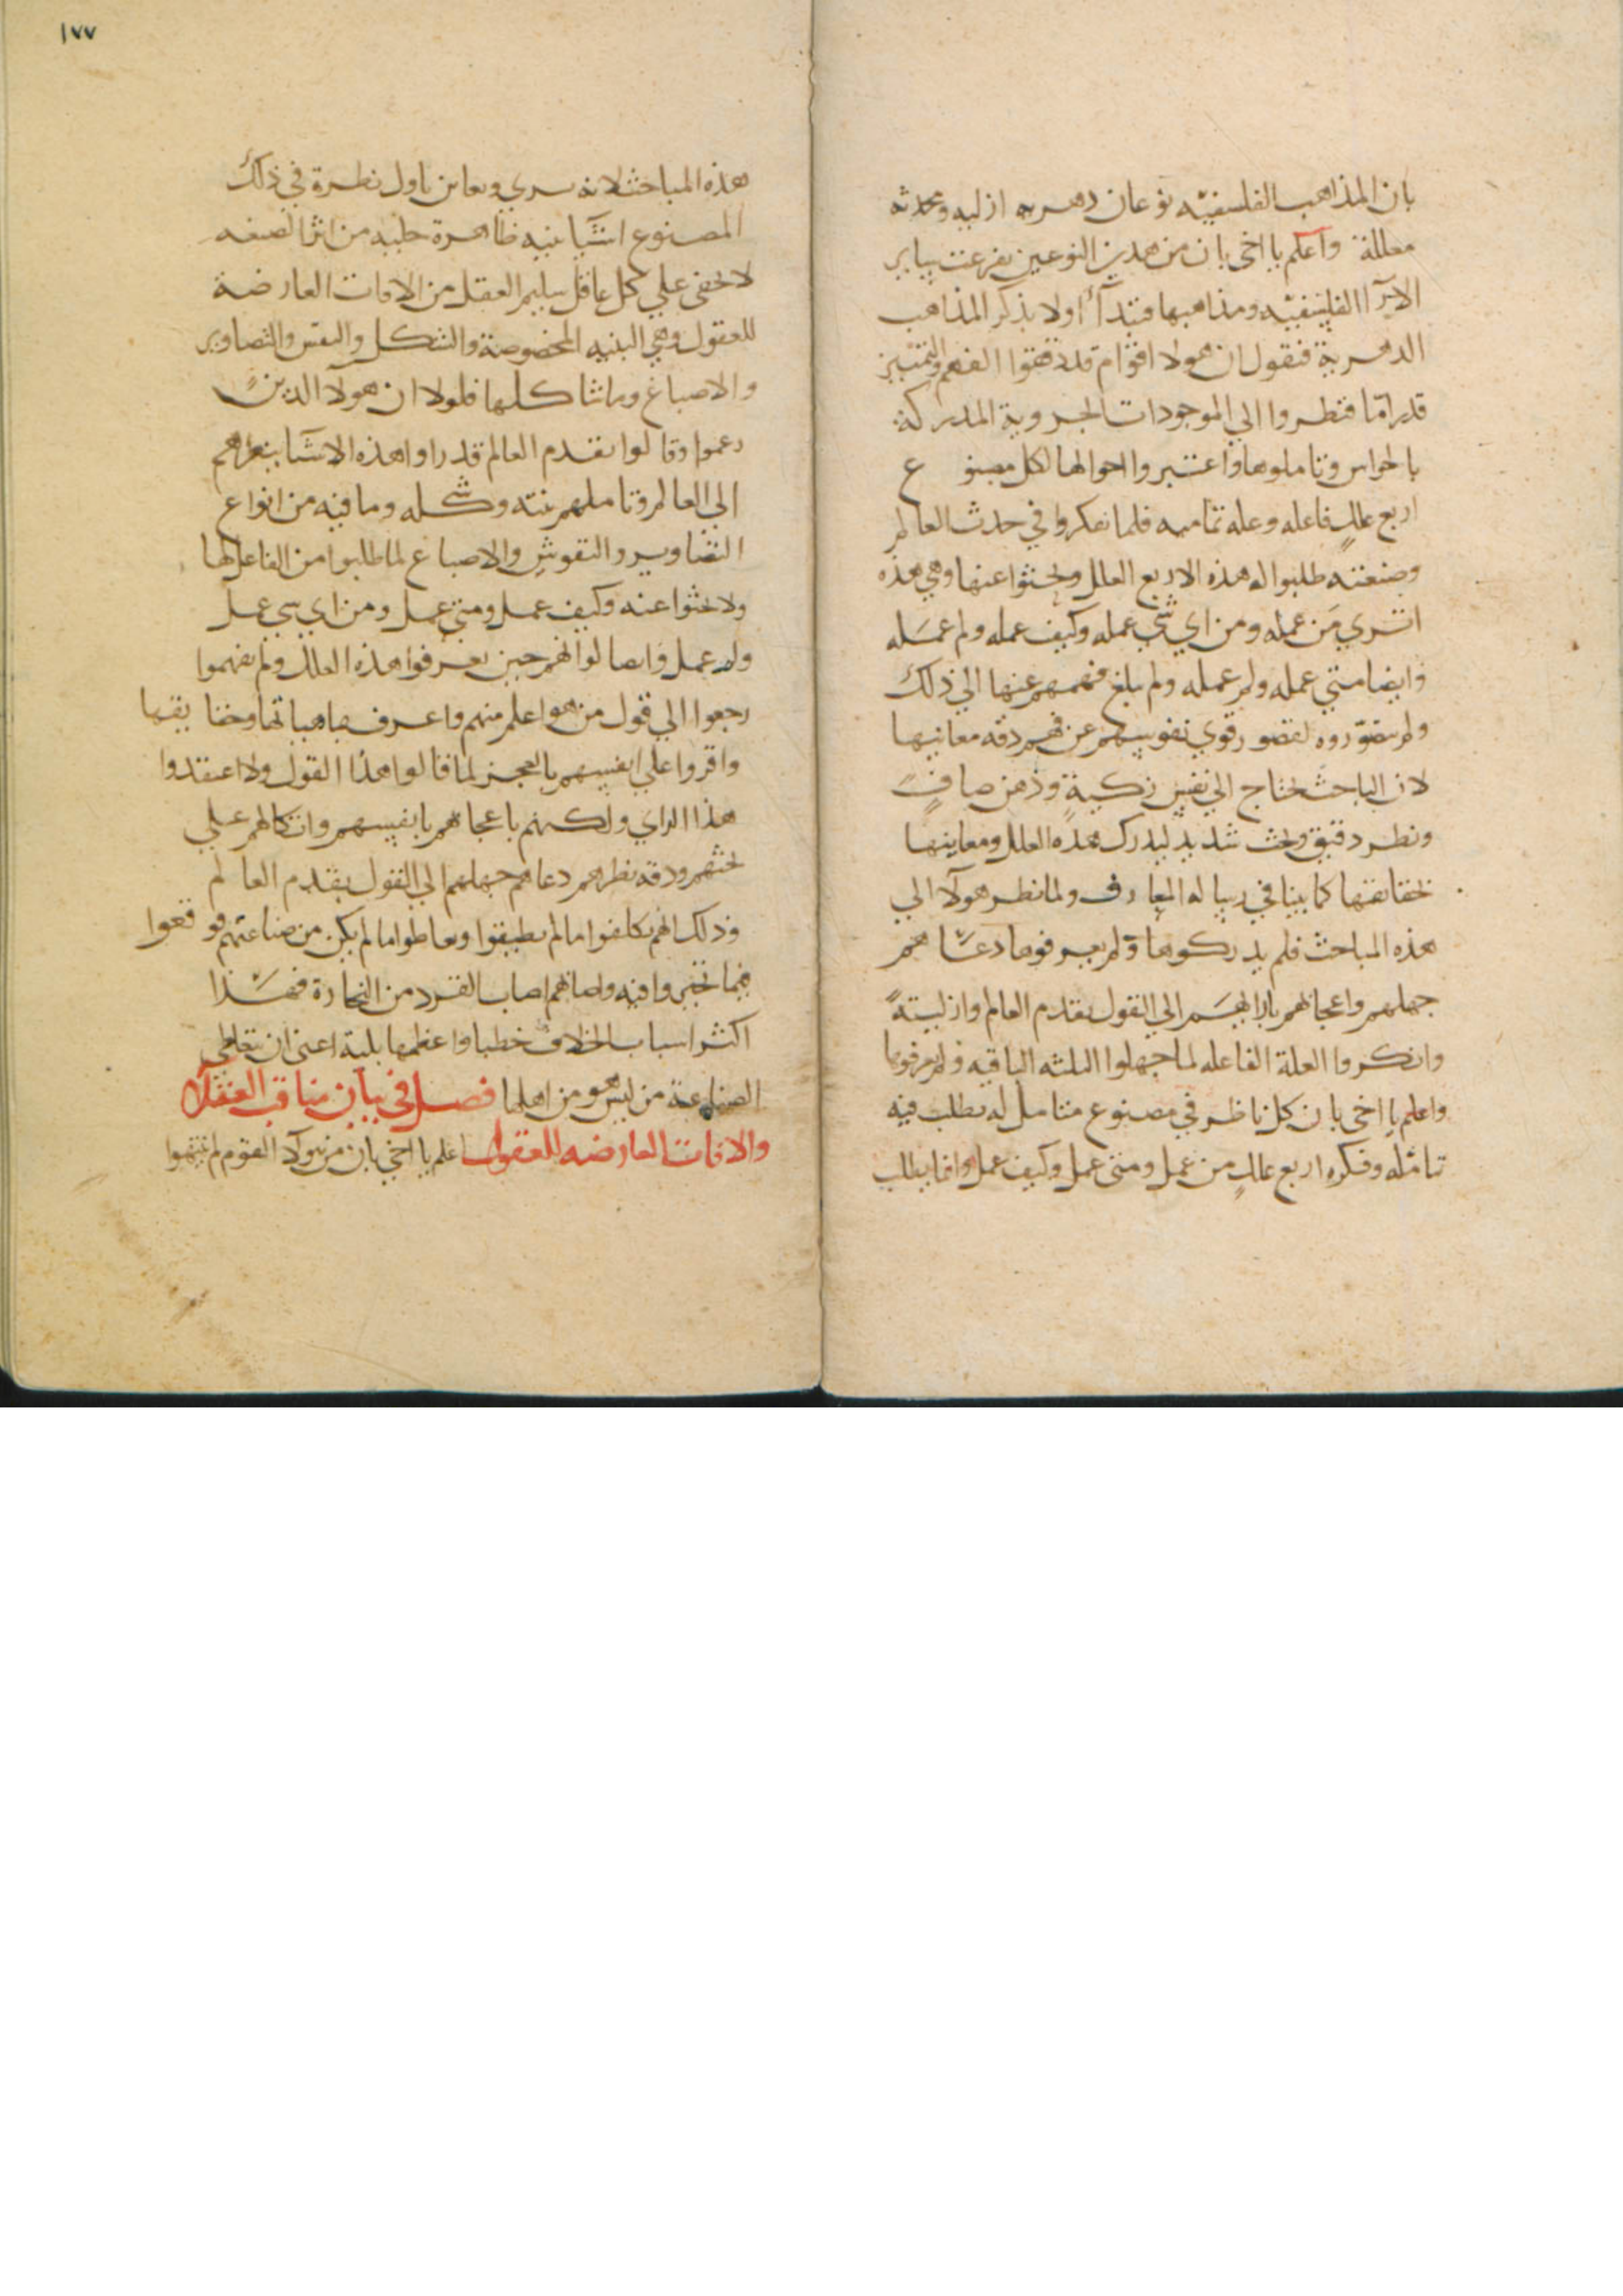 بان المذاهب الفلسفيه نوعان دهريه ازليه ومحدثه
معللة واعلم يا اخي بان من هذين النوعين تفرعت سائر
الارآ الفلسفيه ومذاهبها فنبدأ اولا بذكر المذاهب
الدهرية فنقول ان هولا اقوام قد رزقوا الفهم والتمييز
قدر امّا فنظروا الي الموجودات الجزوية المدركة
بالحواس وتاملوها واعتبروا احوالها لكل مصنوع
اربع عللٍ فاعله وعله تماميه فلما تفكروا في حدث العالم
وصنعته طلبوا له هذه الاربع العلل وبحثوا عنها وهي هذه
اتري مَن عمله ومن اي شي عمله وكيف عمله ولم عمَله
وايضا متي عمله ولم عمله ولم يبلغ فهمهم عنها الي ذلك
ولم يتصوّروه لقصور قوي نفوسهم عن فهم دقه معانيها
لان الباحث يحتاج الي نفس زكيةٍ وذهن صافٍ
ونظر دقيق وبحث شديد ليدرك هذه العلل ومعاينها
بحقائقها كما بينا في رساله المعارف ولما نظر هولآ الي
هذه المباحث فلم يدركوها ولم يعرفوها دعا هم
جهلهم واعجابهم بارايهم الي القول بقدم العالم وازليتهً
وانكروا العلة الفاعله لما جهلوا الثلثه الباقيه ولم يعرفوها
واعلم يا اخي بان كل ناظر في مصنوع متامل له يطلب فيه
تامله وفكره اربع عللٍ من عمل ومتي عمل وكيف عمل وانما يطلب
١٧٧
هذه المباحث لانه يري ويعاين باول نظرة في ذلك
المصنوع اشيآ بنيه ظاهرة جليه من اثر الصنعه
لا يخفي علي كل عاقل سليم العقل من الافات العارضة
للعقول وهي البنيه المخصوصة والشكل والنقش والتصاوير
والاصباغ وما شا كلها فلولا ان هولآ الذين
زعموا وقالوا بقدم العالم قد راوا هذه الاشيآ بنظرهم
الي العالم وتاملهم بنيته وشكله وما فيه من انواع
التصاوير والنقوش والاصباغ لما طلبوا من الفاعل لها
ولا بحثوا عنه وكيف عمل ومتي عمل ومن اي شي عمل
ولم عمل وايضا لو انهم حين لم يعرفوا هذه العلل ولم يفهموا
رجعوا الي قول من هو اعلم منهم واعرف بماهياتها وحقايقها
واقروا علي انفسهم بالعجز لما قالوا هذا القول ولا اعتقدوا
هذا الراي ولكنهم باعجابهم بانفسهم واتكالهم علي
بحثهم ودقه نظرهم دعاهم جهلهم الي القول بقدم العالم
وذلك انهم تكلفوا ما لم يطيقوا وتعاطوا ما لم يكن من صناعتهم فوقعوا
فيما تحيروا فيه واصابهم ما اصاب القرد من النجارة فهذا
اكثر اسباب الخلاف خطبا واعظمها بلية اعني ان يتعاطي
الصناعة من ليس هو من اهلها فصل في بيان مناقب العقلآ
والافات العارضه للعقول اعلم يا اخي بان من هولآ القوم لم ينتبهوا